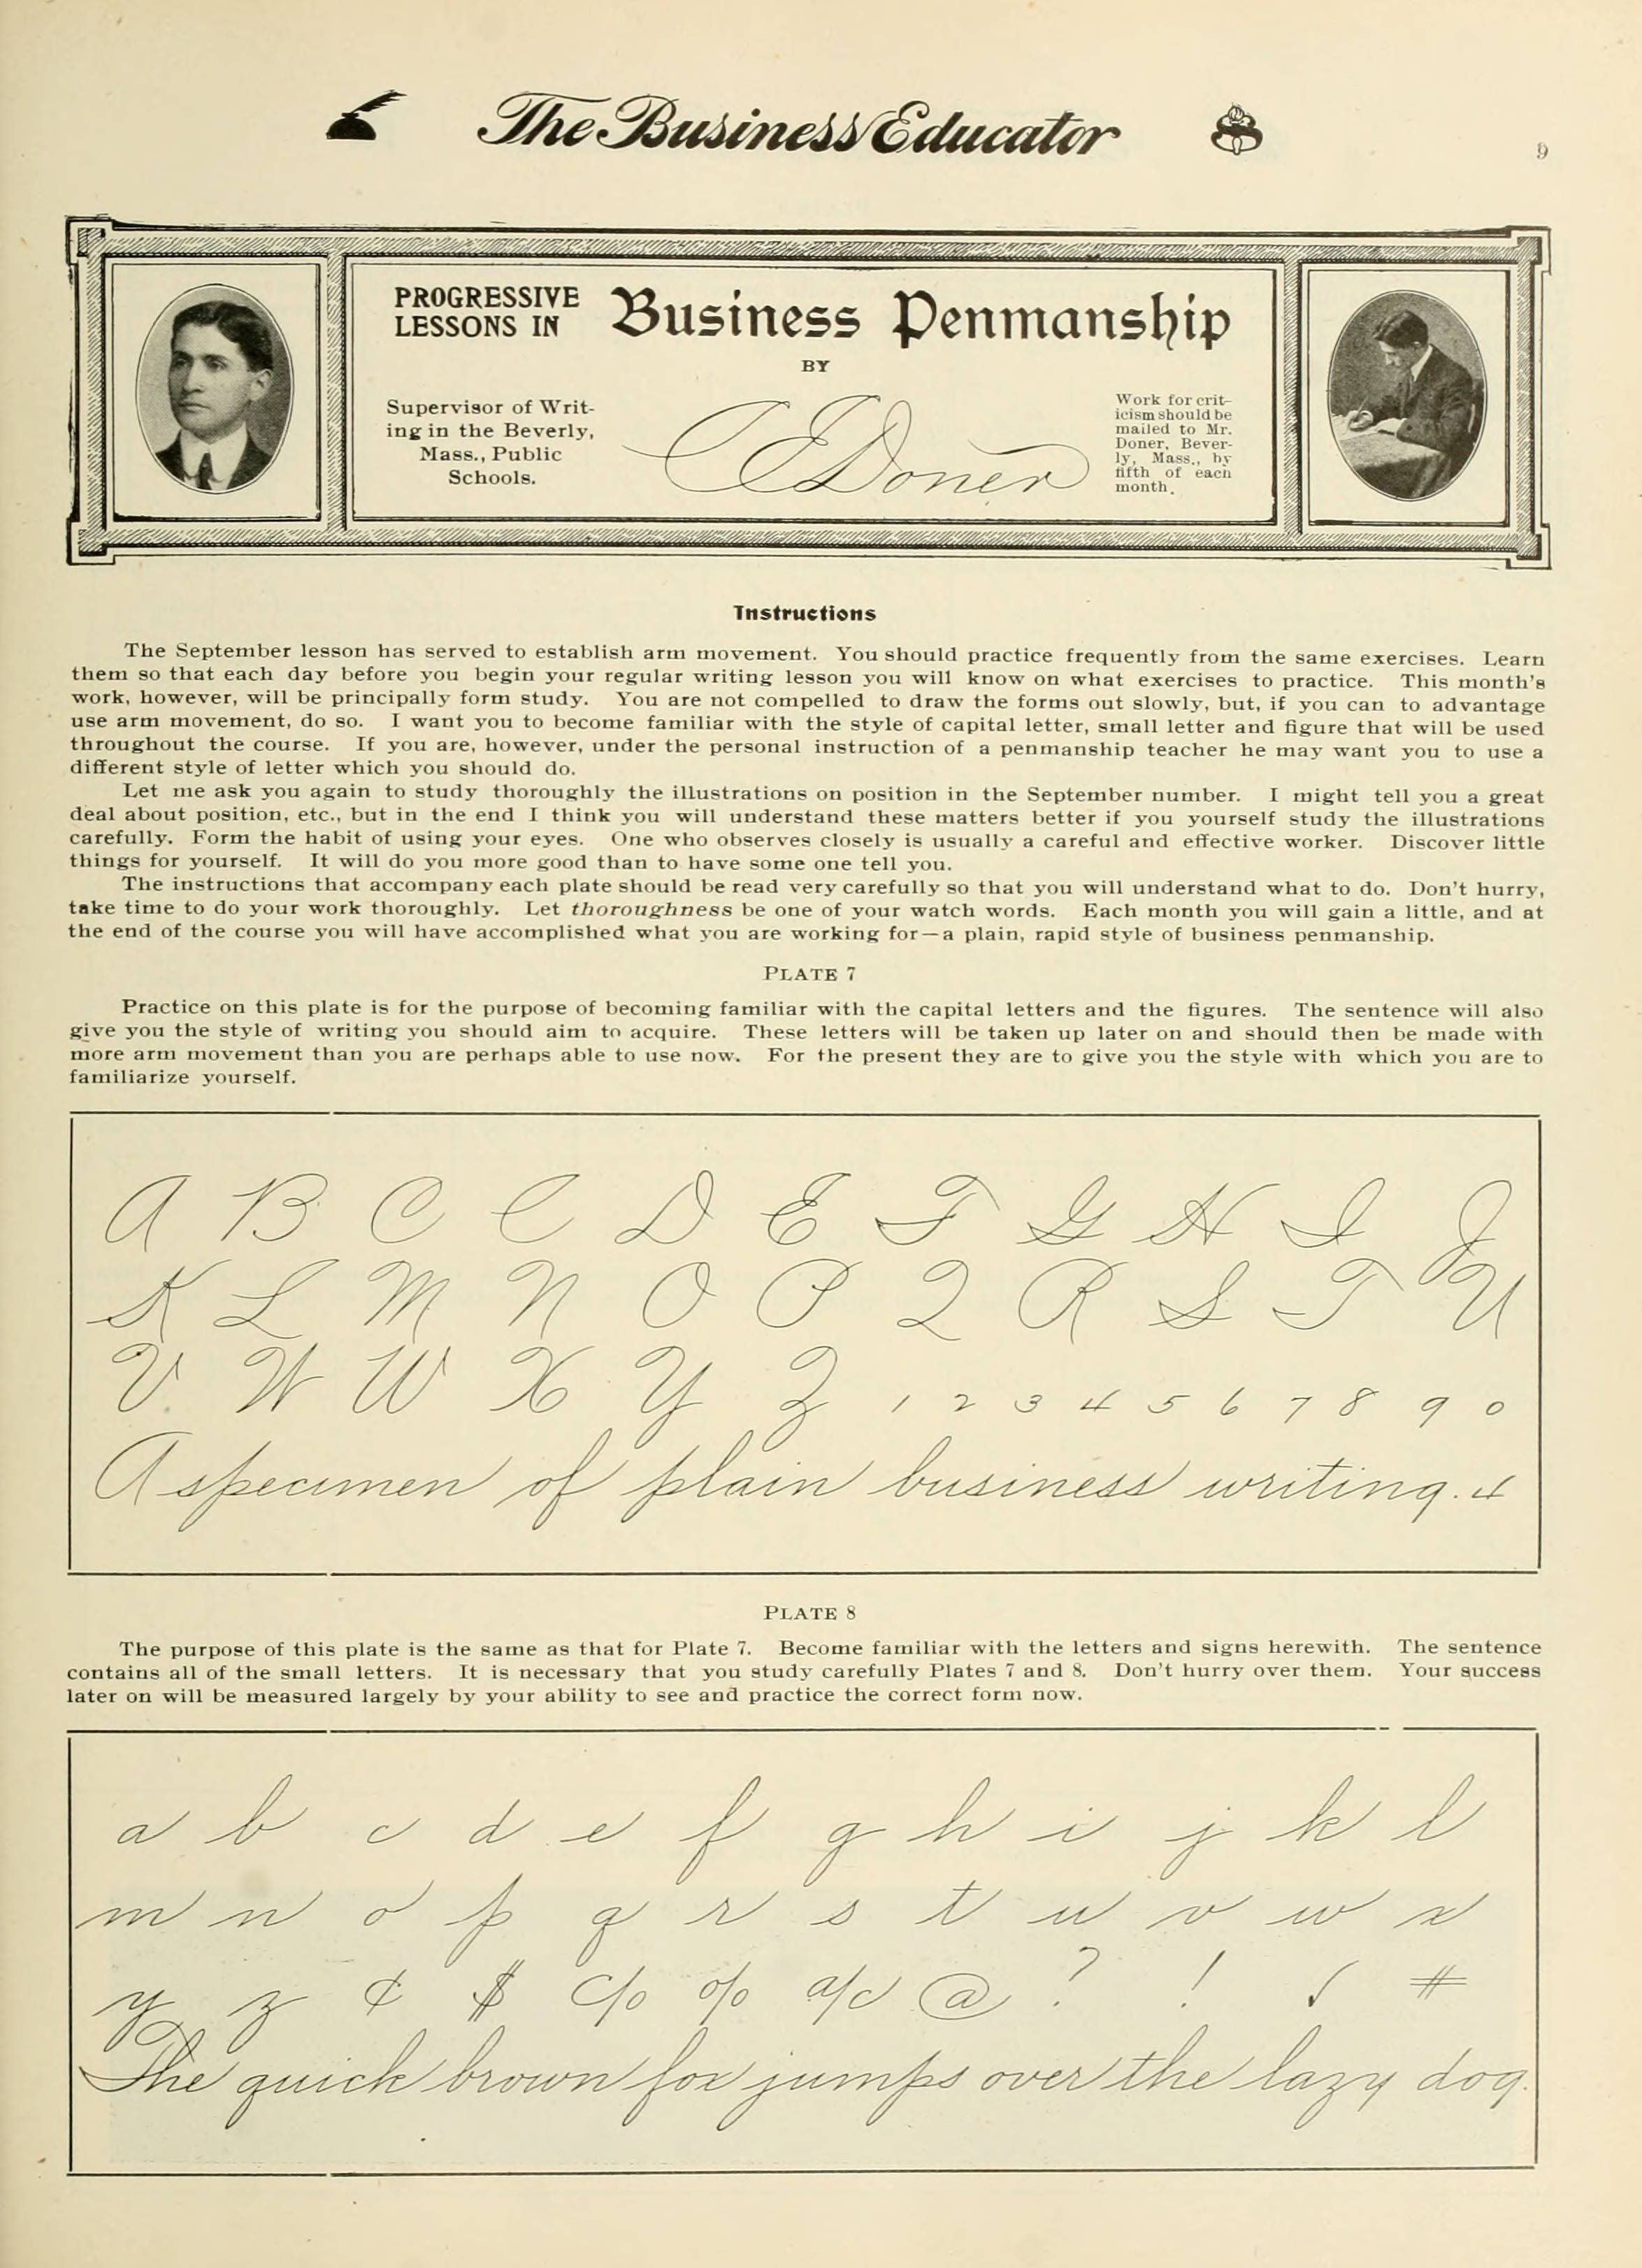 The Business Educator
9
PROGRESSIVE
LESSONS IN
Business Penmanship
BY
Supervisor of Writ-
ing in the Beverly,
Mass., Public
Schools.
C E Doner
Work for crit-
icism should be
mailed to Mr.
Doner, Bever-
ly, Mass., by
fifth of each
month.
Instructions
The September lesson has served to establish arm movement. You should practice frequently from the same exercises. Learn
them so that each day before you begin your regular writing lesson you will know on what exercises to practice. This month's
work, however, will be principally form study. You are not compelled to draw the forms out slowly, but, if you can to advantage
use arm movement, do so. I want you to become familiar with the style of capital letter, small letter and figure that will be used
throughout the course. If you are, however, under the personal instruction of a penmanship teacher he may want you to use a
different style of letter which you should do.
Let me ask you again to study thoroughly the illustrations on position in the September number. I might tell you a great
deal about position, etc., but in the end I think you will understand these matters better if you yourself study the illustrations
carefully. Form the habit of using your eyes. One who observes closely is usually a careful and effective worker. Discover little
things for yourself. It will do you more good than to have some one tell you.
The instructions that accompany each plate should be read very carefully so that you will understand what to do. Don't hurry,
take time to do your work thoroughly. Let thoroughness be one of your watch words. Each month you will gain a little, and at
the end of the course you will have accomplished what you are working for—a plain, rapid style of business penmanship.
PLATE 7
Practice on this plate is for the purpose of becoming familiar with the capital letters and the figures. The sentence will also
give you the style of writing you should aim to acquire. These letters will be taken up later on and should then be made with
more arm movement than you are perhaps able to use now. For the present they are to give you the style with which you are to
familiarize yourself.
A B C C D E F G H I J
K L M N O P Q R S T U
V W W X Y Z 1 2 3 4 5 6 7 8 9 0
A specimen of plain business writing. 4
PLATE 8
The purpose of this plate is the same as that for Plate 7. Become familiar with the letters and signs herewith. The sentence
contains all of the small letters. It is necessary that you study carefully Plates 7 and 8. Don't hurry over them. Your success
later on will be measured largely by your ability to see and practice the correct form now.
a b c d e f g h i j k l
m n o p q r s t u v w x
y z ¢ $ c/o % a/c @ ? ! √ #
The quick brown fox jumps over the lazy dog.